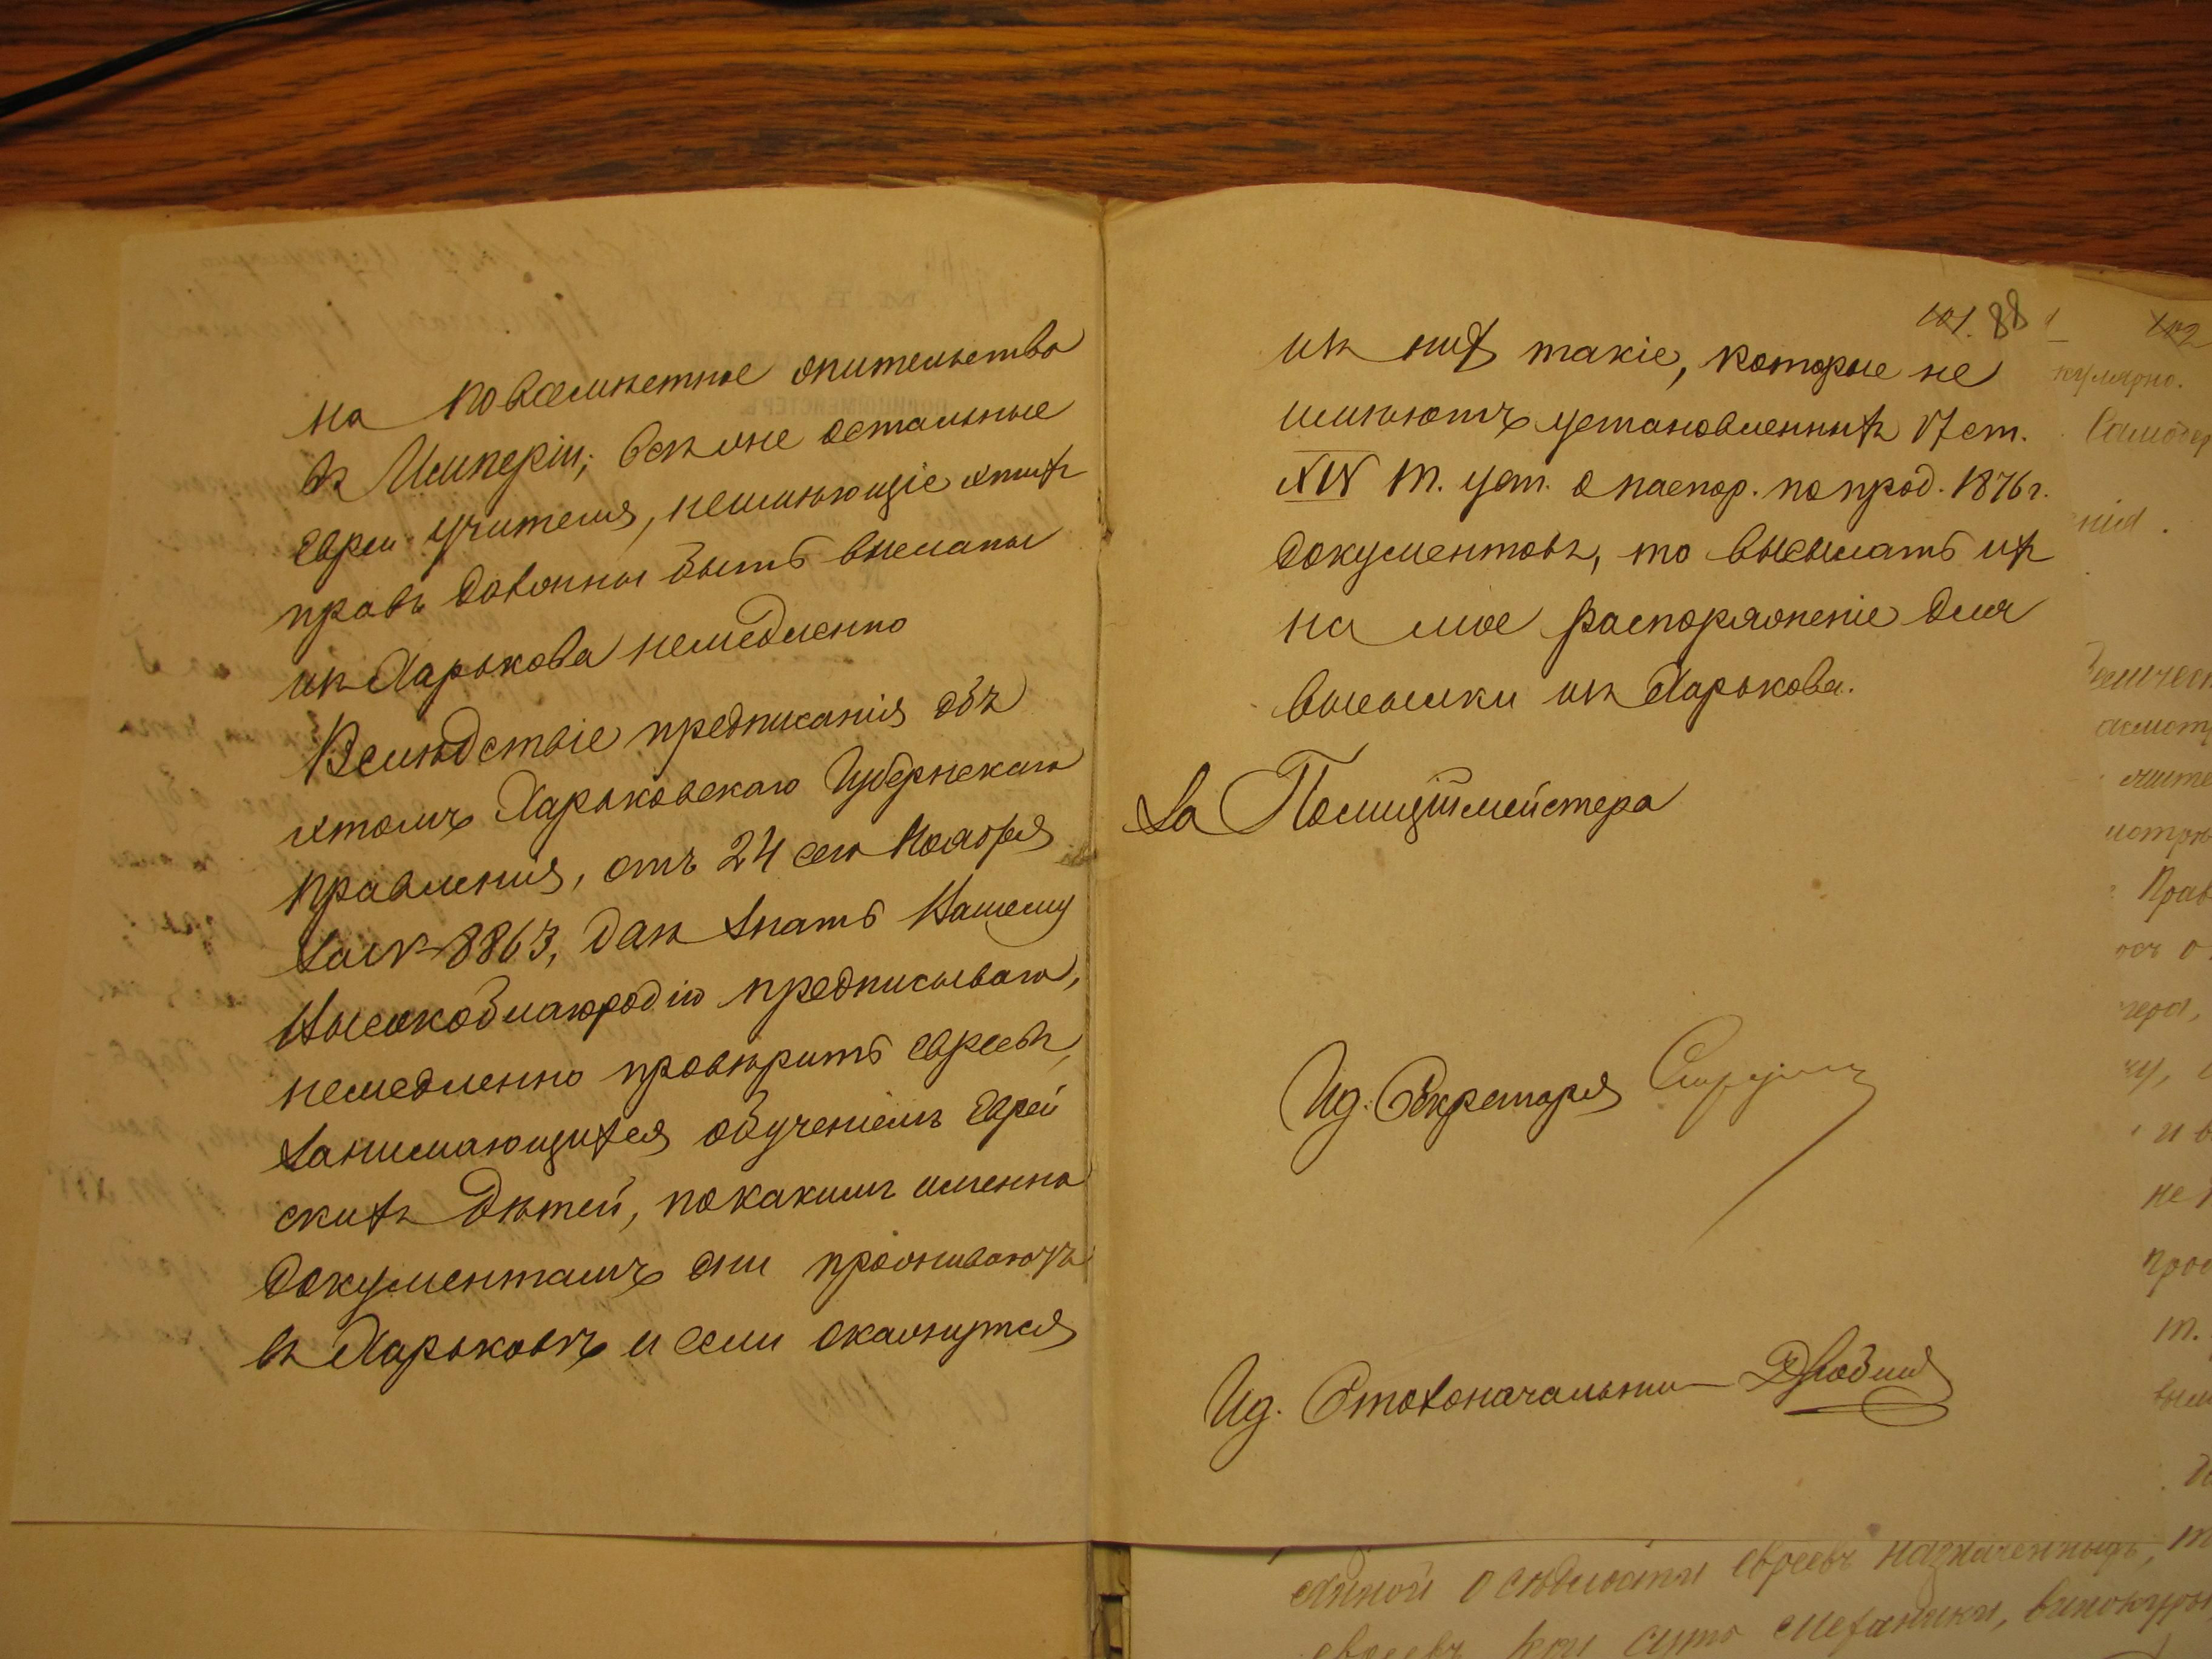 на повсемѣстное жительство
въ Имперіи; всѣ же остальные
евреи учителя, неимѣющіе этихъ
правъ должны быть высланы
изъ Харькова немедленно
Вслѣдствіе предписанія объ
этомъ Харьковскаго Губернскаго
Правленія, отъ 24 сего Ноября
за № 8863, даю знать Вашему
Высокоблагородію предписываю,
немедленно провѣрить евреевъ,
занимающихся обученіемъ еврей
скихъ дѣтей, по какимъ именно
документамъ они проживаютъ
въ Харьковѣ и если окажутся
101. 88
изъ нихъ такіе, которые не
имѣютъ установленныхъ 17 ст.
XIV т. уст. о паспор. по прод. 1876 г.
документовъ, то высылать ихъ
на мое распоряженіе для
высылки изъ Харькова.
За Полиціймейстера
Ид. Секретаря
Ид. Столоначальни
102
кулярно.
ній.
Прав
прос
т.
единой осѣдлости евреевъ назначенныхъ,
евреевъ при сущо механики, винокуры